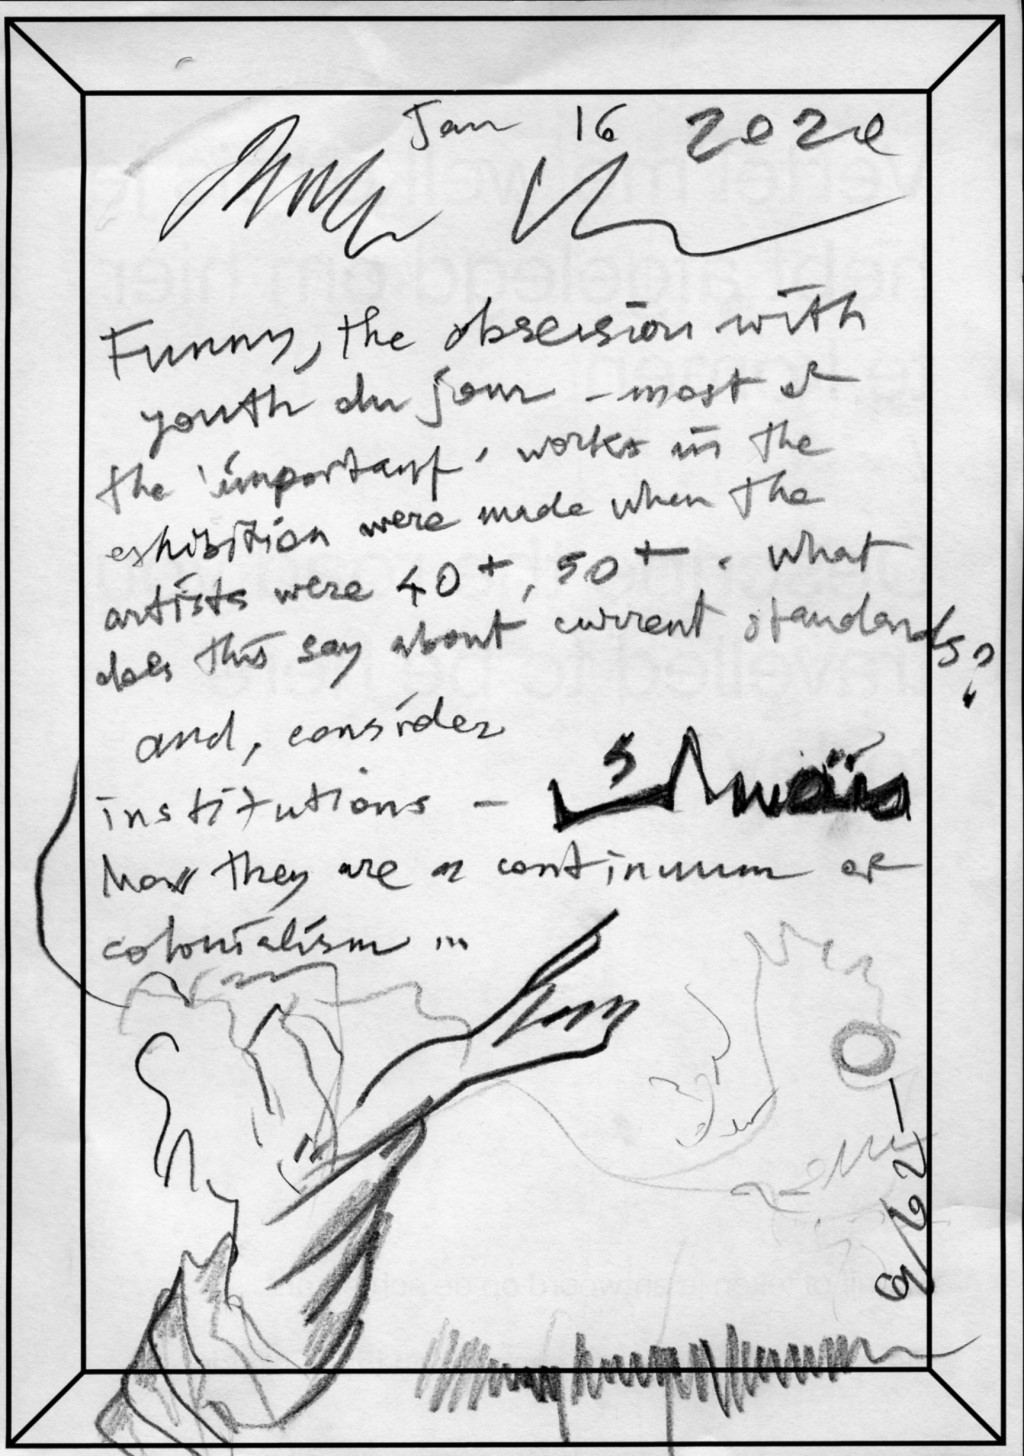 Jan 16 2020
Funny, the obsession with
youth du jour - most of
the 'important' works in the
exhibition were made when the
artists were 40+, 50+. What
does this say about current standards?
and, consider
institutions -
How they are a continuum of
colonialism ...